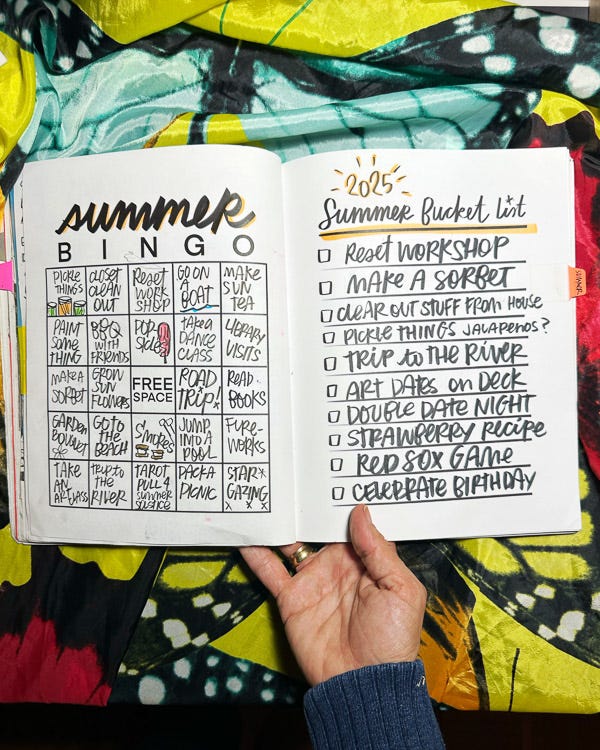 summer
BINGO
PICKLE THINGS
CLOSET CLEAN OUT
RESET WORK SHOP
GO ON A BOAT
MAKE SUN TEA
PAINT SOME THING
BBQ WITH FRIENDS
POP SICLE
TAKE A DANCE CLASS
LIBRARY VISITS
MAKE A SORBET
GROW SUN FLOWERS
FREE SPACE
ROAD TRIP!
READ BOOKS
GARDEN BOUQUET
GO TO THE BEACH
S'MORES
JUMP INTO A POOL
FIRE-WORKS
TAKE AN ART CLASS
TRIP to THE RIVER
TAROT PULL 4 summer SOLSTICE
PACK A PICNIC
STAR GAZING
X X X
2025
Summer Bucket list
Reset WORKSHOP
MAKE A SORBET
CLEAR OUT STUFF FROM HOUSE
PICKLE THINGS JALAPENOS?
TRIP to THE RIVER
ART DATES on DECK
DOUBLE DATE NIGHT
STRAWBERRY RECIPE
RED SOX GAME
CELEBRATE BIRTHDAY
SUMMER